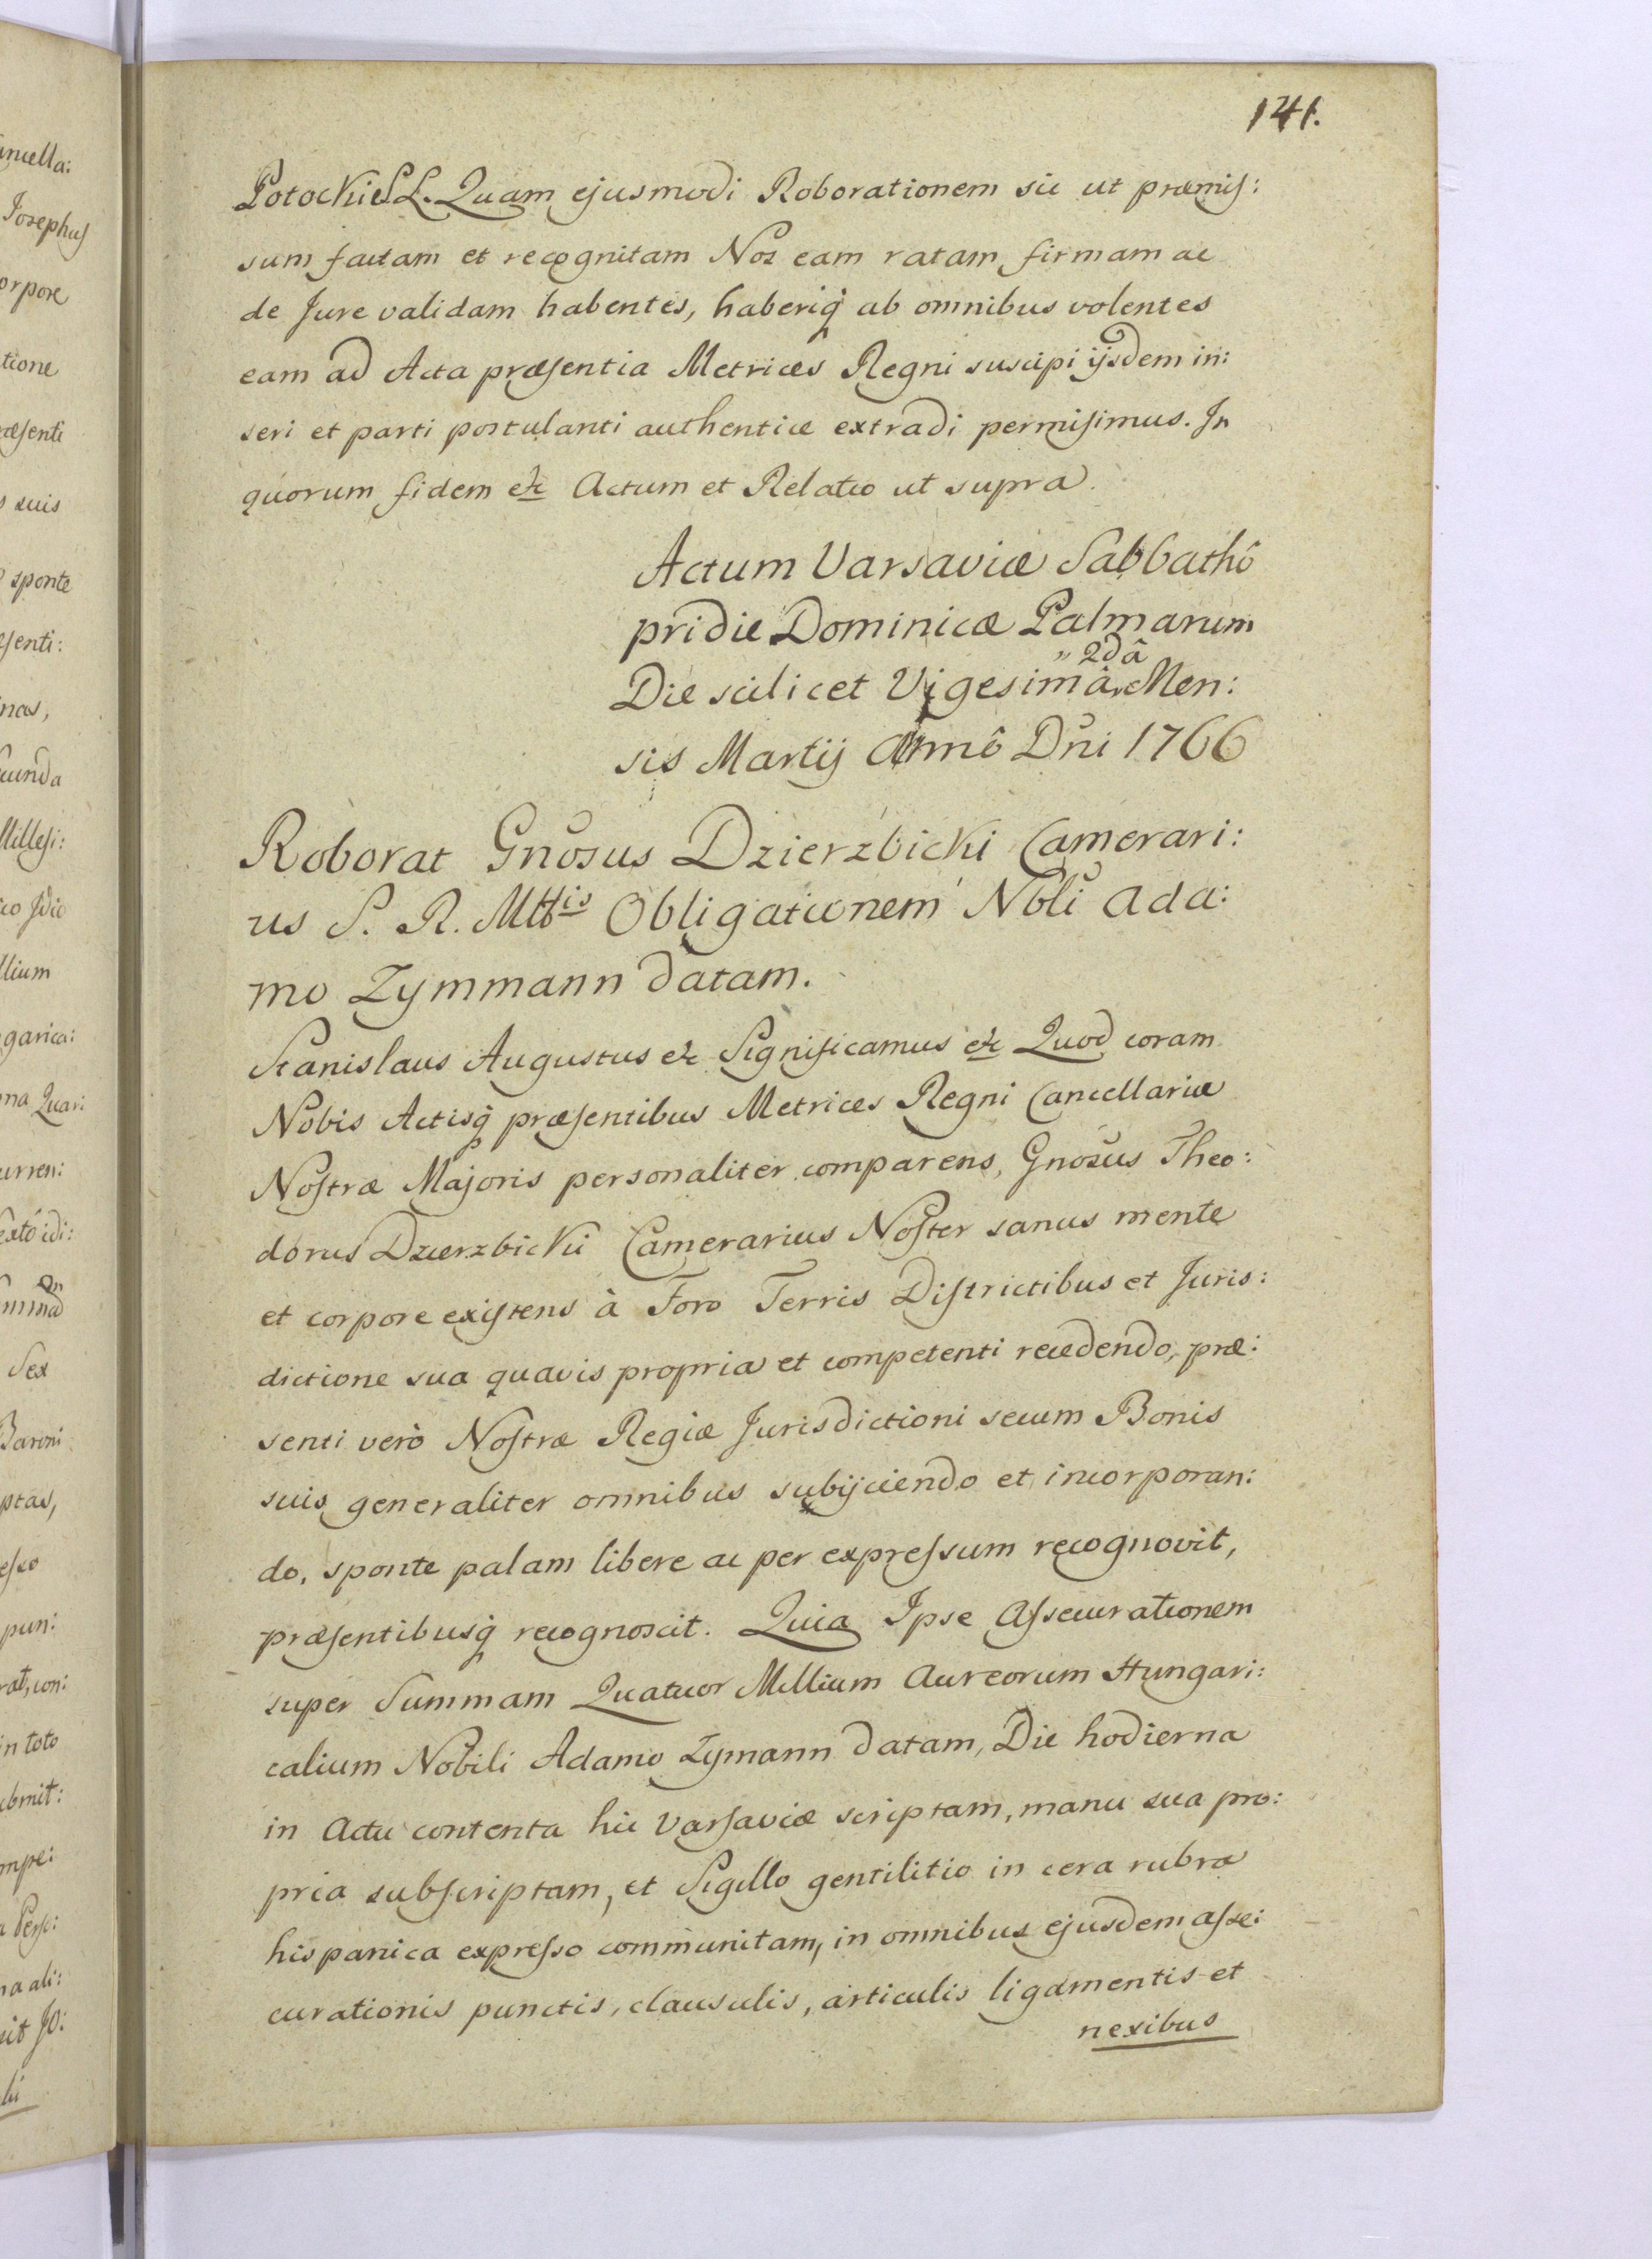 141.
Potocki S L. Quam ejusmodi Roborationem sic ut præmis:
sum factam et recognitam Nos eam ratam firmam ac
de Jure validam habentes, haberiq̃ ab omnibus volentes
eam ad Acta præsentia Metrices Regni suscipi ijsdem in:
seri et parti postulanti authentice extradi permisimus. In
quorum fidem etc Actum et Relatio ut supra.
Actum Varsaviæ Sabbathô
pridie Dominicæ Palmarum
" 2dâ
Die scilicet Vigesimâ Men:
sis Martij Annô Dñi 1766
Roborat Gnõsus Dzierzbicki Camerari:
us S. R. Mttis Obligationem Nbli Ada:
mo Zymmann datam.
Stanislaus Augustus etc Significamus etc Quod coram
Nobis Actisq̃ præsentibus Metrices Regni Cancellariæ
Nostræ Majoris personaliter comparens, Gnõsus Theo:
dorus Dzierzbicki Camerarius Noster sanus mente
et corpore existens à Foro Terris Districtibus et Juris:
dictione sua quavis propria et competenti recedendo, præ:
senti verò Nostræ Regiæ Jurisdictioni secum Bonis
suis generaliter omnibus subijciendo et incorporan:
do, sponte palam libere ac per expressum recognovit,
præsentibusq̃ recognoscit. Quia Ipse Assecurationem
super Summam Quatuor Millium Aureorum Hungari:
calium Nobili Adamo Zymann datam, Die hodierna
in Actu contenta hic Varsaviæ scriptam, manu sua pro:
pria subscriptam, et Sigillo gentilitio in cera rubra
hispanica expresso communitam, in omnibus ejusdem asse:
curationis punctis, clausulis, articulis ligamentis et
nexibus